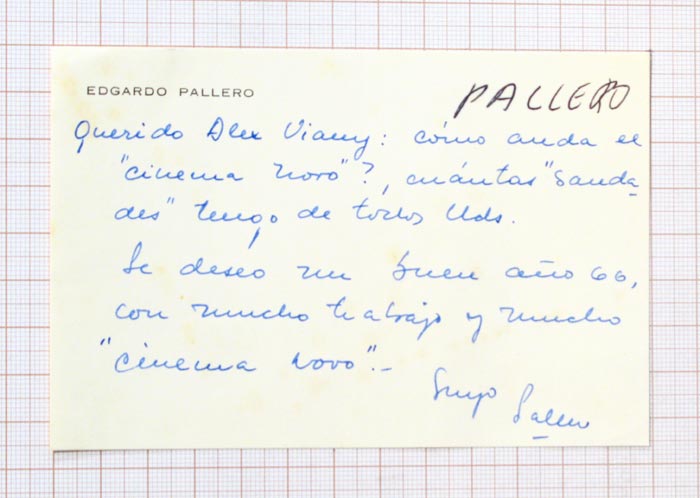 EDGARDO PALLERO
PALLERO
Querido Alex Viany: cómo anda el
"cinema novo"?, cuántas "sauda
des" tengo de todos Uds.
Le deseo un buen año 66,
con mucho trabajo y mucho
"cinema novo".-
Suyo
Pallero